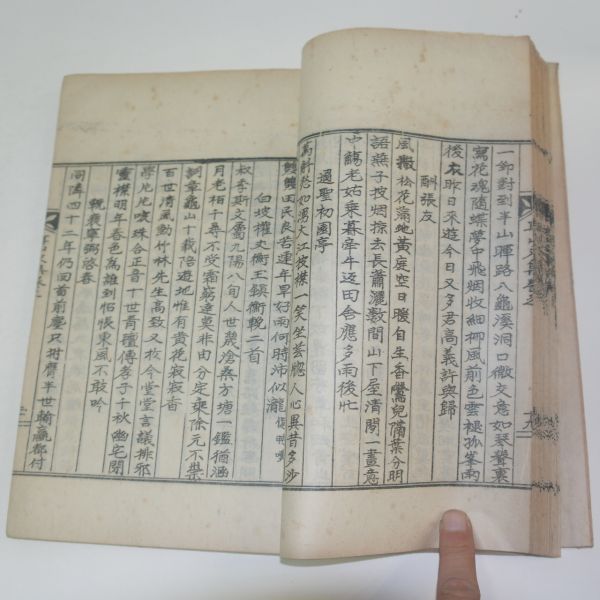 一鉚對到半山暉路入龜溪洞口微交意如琴聲裏
寫花魂隨蝶夢中飛烟收細柳風前色雲褪孤峯雨
後衣昨日來遊今日又多君高義許與歸
酬張友
風撒松花滿地黃庭空日暖自生香鶯兒備葉分明
語燕子披烟掠去長蕭灑數間山下屋清閒一畫意
中觴老姑乘暮牽牛返田舍應多雨後忙
過聖初園亭
萬斛愁似湧大江披襟一笑坐芸牕人心異昔多沙
田民良苦連年旱好雨何時沛似瀧
白坡權丈衡王鎭衡輓二首
叔季斯文屬九陽八旬人世葳滄桑方塘一鑑猶涵
月老栢千尋不受霜窮達莫非由分定乘除元不禁
詞章龜山十載陪遊地惟有黃花寂寂香
百世清風動竹林先生高致又於今堂堂言議排邪
學片片咳珠合正音十世青氊傳孝子千秋幽宅閉
靈襟明年春色爲誰到怊悵東風不敢吟
輓裵寧弼啓春
同隣四十二年仍回首前塵只拊膺半世輸贏都付